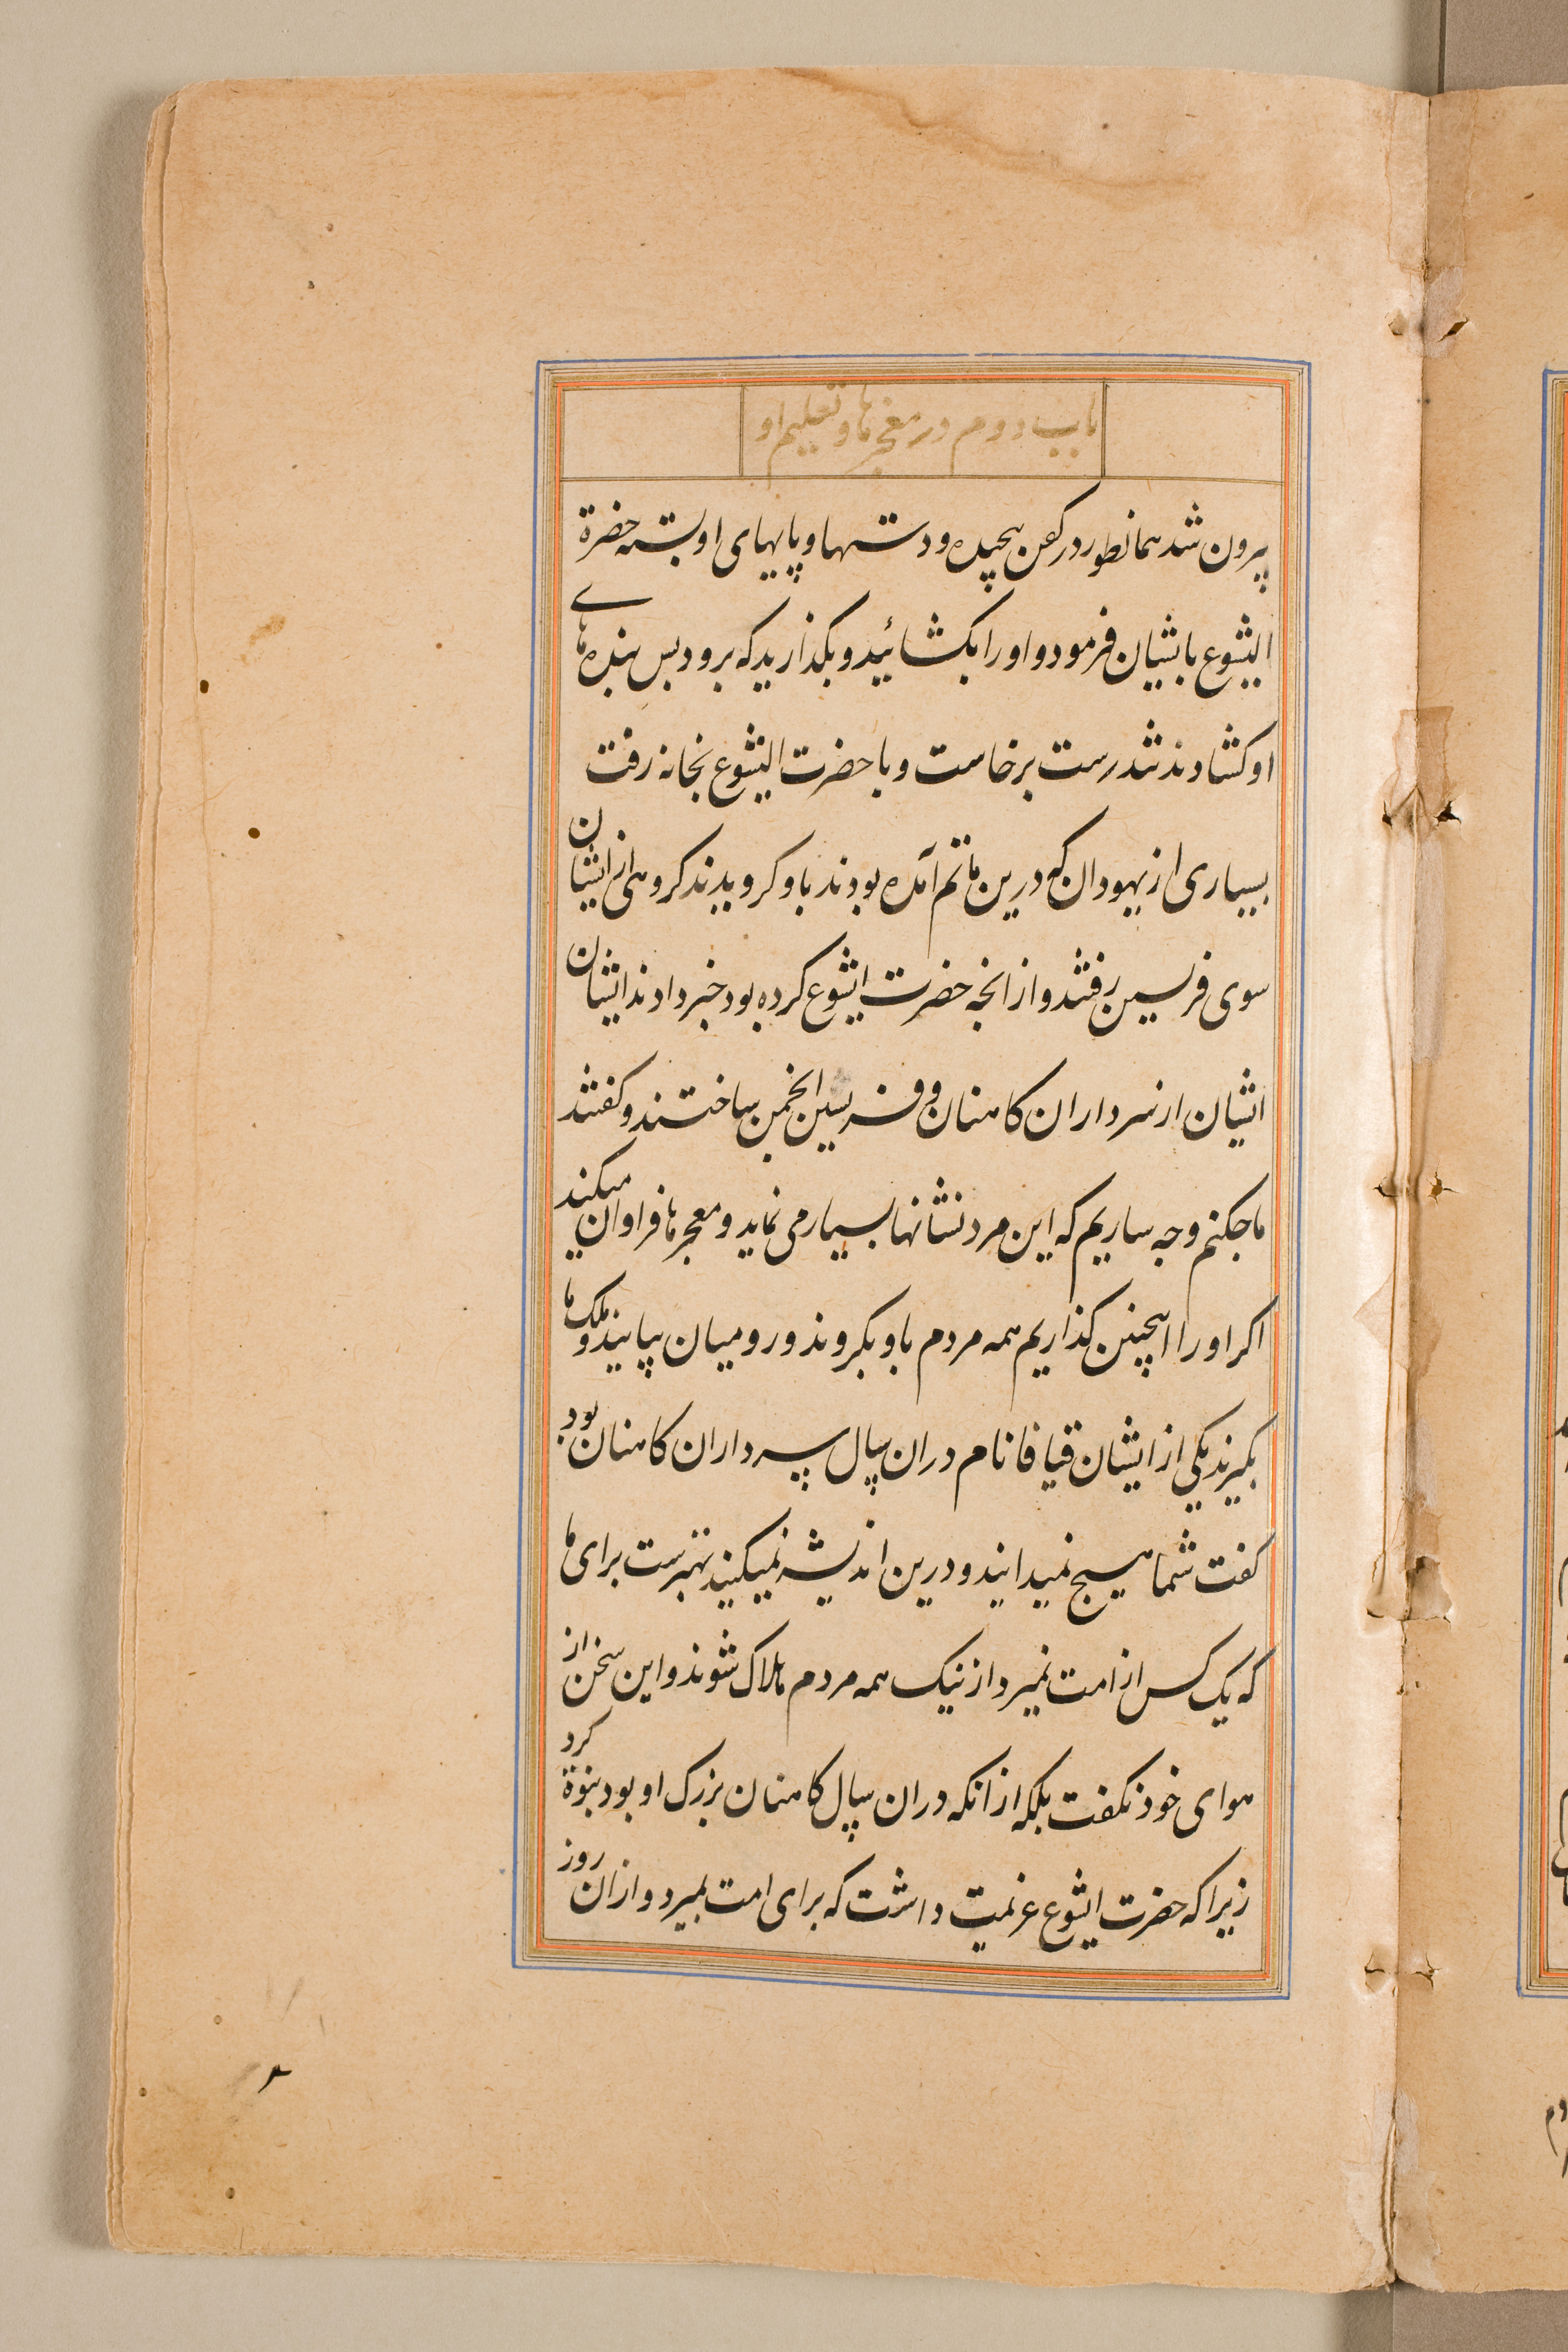 باب دوم در معجزها و تعلیم او
بیرون شد همانطور در کفن پیچیده و دستها و پایهای او بسته حضرة
ایشوع بایشان فرمود و او را بکشائید و بکذارید که برود پس بندهای
او کشادند تندرست برخاست و با حضرت ایشوع بخانه رفت
بسیاری از یهودان که درین ماتم آمده بودند باو کرویدند کروهی از ایشان
سوی فرسین رفتند و از انچه حضرت ایشوع کرده بود خبر دادند ایشان
ایشان از سرداران کاهنان و فرسین انجمن ساختند و کفتند
ما چکنم و چه سازیم که این مرد نشانها بسیار می نماید و معجزها فراوان میکند
اکر او را اهچنین کذاریم همه مردم باو بکروند و رومیان بیایند و ملک ما
بکیرند یکی از ایشان قیافا نام دران سال سرداران کاهنان بود
کفت شما هیچ نمیدانید و درین اندیشه نمیکنید بهترست برای ما
که یک کس از امت بمیرد از نیک همه مردم هلاک شوند و این سخن از
هوای خود نکفت بلکه از انکه دران سال کاهنان بزرک او بود بنوة کرد
زیرا که حضرت ایشوع عزیمت داشت که برای امت بمیرد و ازان روز